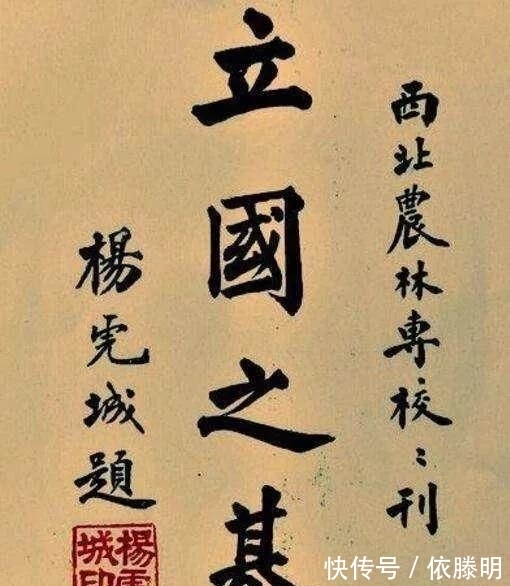 西北農林専校〻刊
立國之基
楊虎城題
楊虎城印
快传号/依滕明